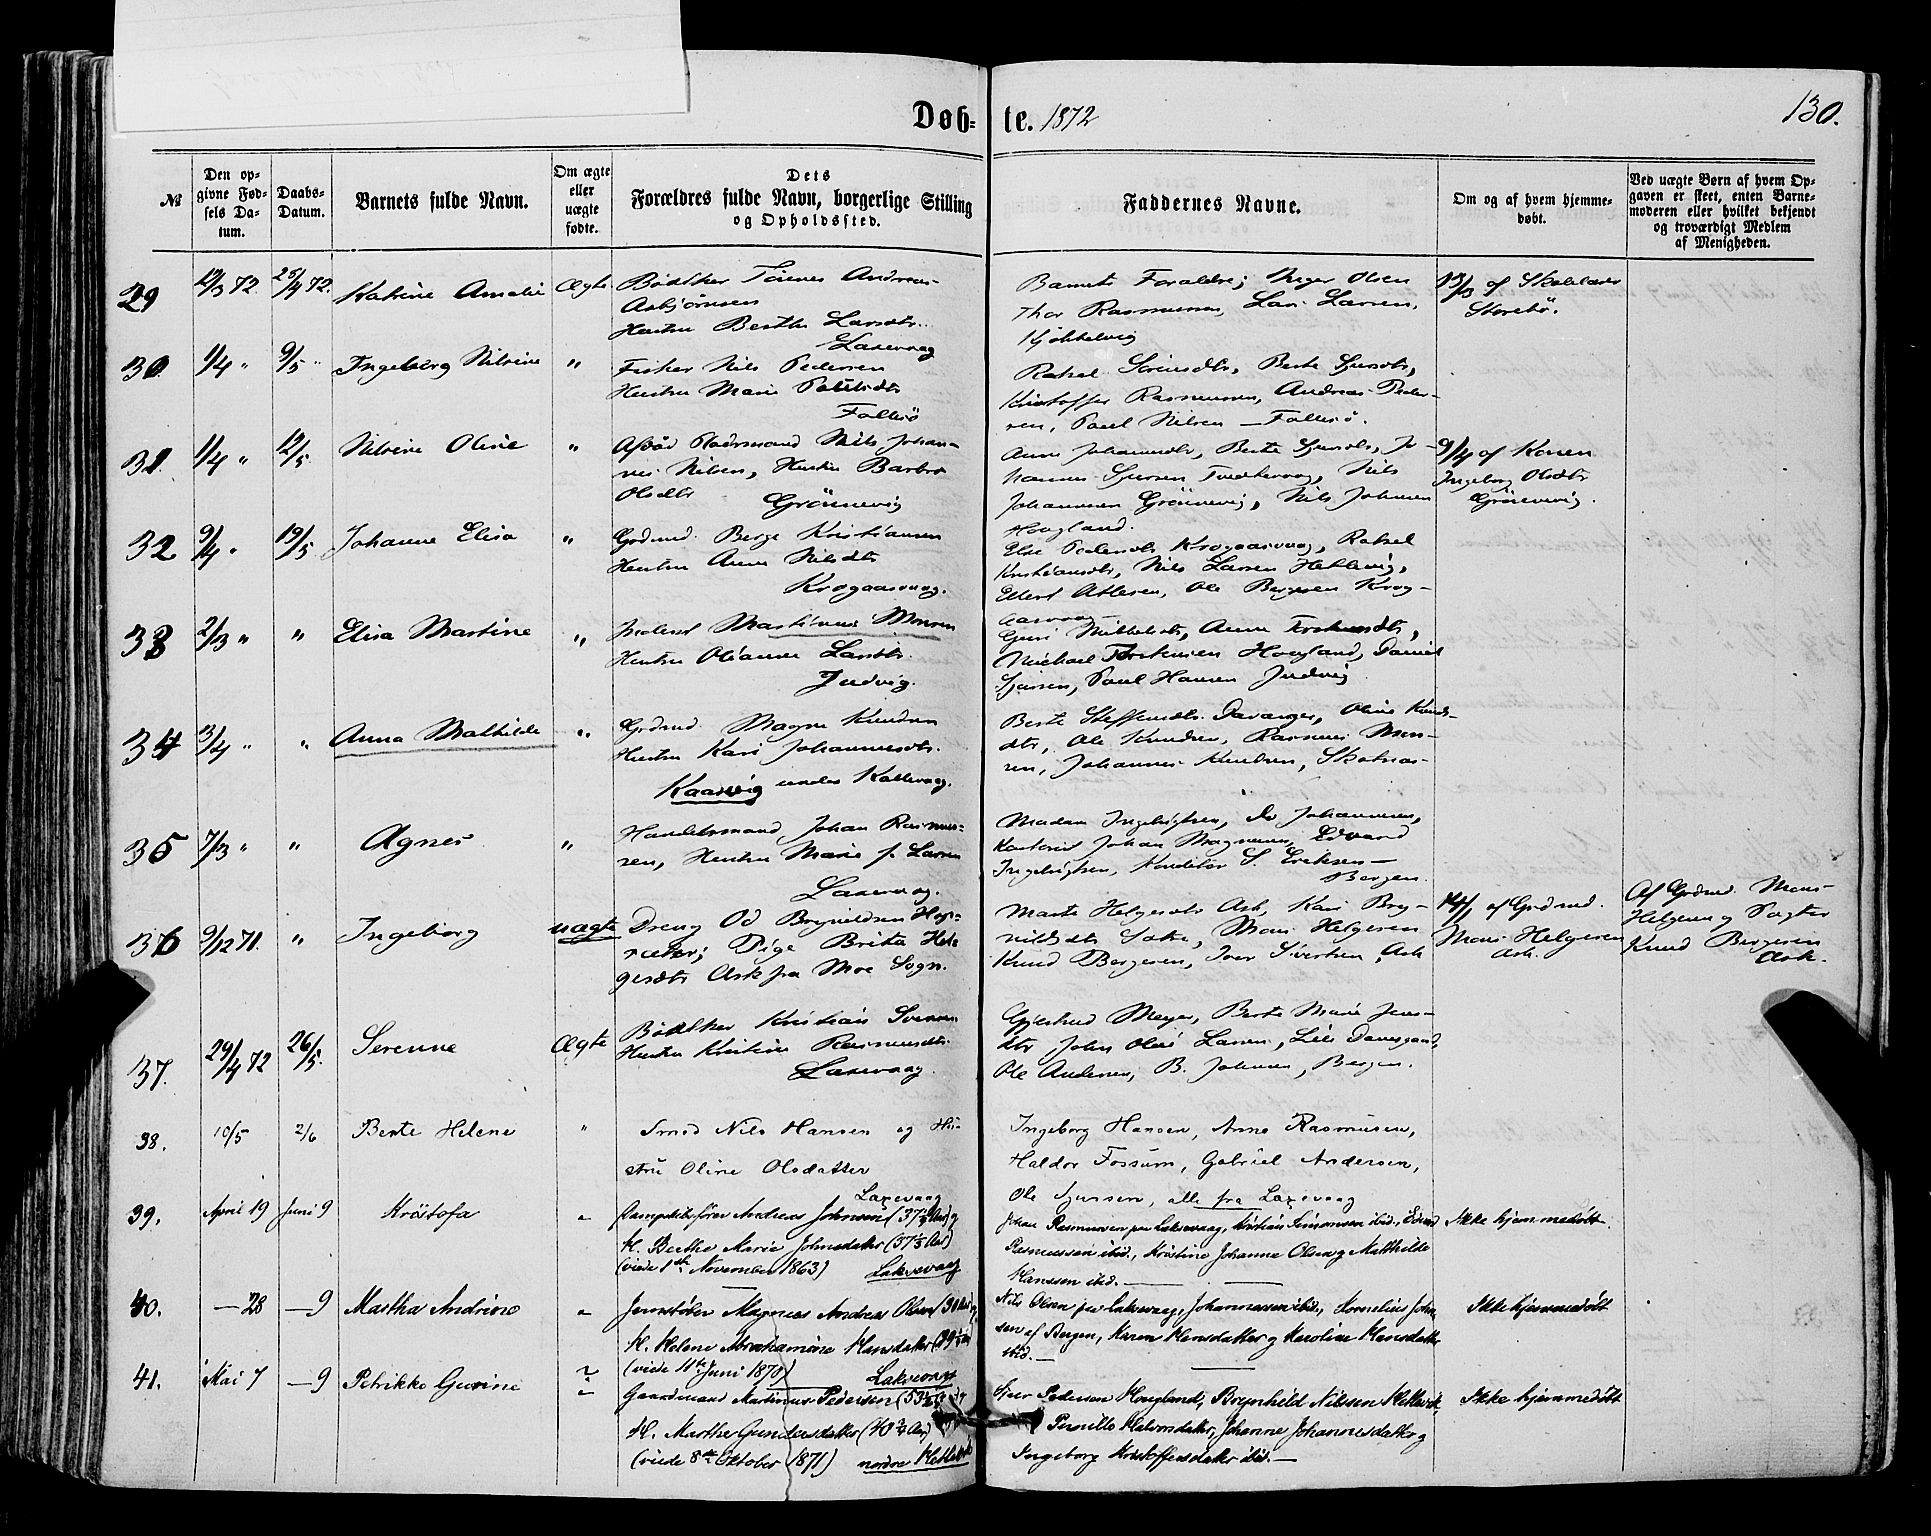 Døb-te. 1872
130.
№
Den opgivne Fødsels Datum.
Daabs-Datum.
Barnets fulde Navn.
Om ægte eller uægte fødte.
Dets Forældres fulde Navn, borgerlige Stilling og Opholdssted.
Faddernes Navne.
Om og af hvem hjemmedøbt.
Ved uægte Børn af hvem Opgaven er skeet, enten Barnemoderen eller hvilket bekjendt og troværdigt Medlem af Menigheden.
29 12/3 72. 25/4 72. Katrine Amalie Ægte
Bødtker Andreas
Asbjørnsen
Hustru Berthe Larsdtr.
Laxevaag
Barnets Forældre; Olsen
Thor Rasmussen, Lars Larsen,
13/3 af Skolelærer
Storebø.
30 1/4 " 9/5 " Ingeborg Nilsine "
Fisker Nils Pedersen
Hustru Marie
Follesø
Rakel Berte Sjursdtr,
Kristoffer Rasmussen, Andreas Peder-
sen, Paul Nilsen — Follesø.
31. 1/4 " 12/5. Nilsine Oline "
Nils Johan-
nes Nilsen, Hustru Barbro
Olsdtr Grønnevig
Anna Johannesdtr, Berte Sjursdtr, Jo-
hannes Sjursen Nils
Johannesen Grønnevig, Nils Johnsen
Hougland.
9/4 af Konen
Ingeborg Olsdtr
Grønnevig.
32 9/4 " 19/5 Johanne Elisa "
Grdmd. Berge Kristiansen
Hustru Anna Nilsdtr
Krogaasvaag.
Else Pedersdtr Krogaasvaag, Rakel
Kristiansdtr, Nils Larsen Hetlevig,
Ellert Atlesen, Ole Bergesen Krog-
aasvaag
33 2/3 " " Elisa Martine "
Martinus Monsen
Hustru Olianne Larsdtr.
Judvig.
Guri Mikkelsdtr, Anna
Michael Hougland, Daniel
Sjursen, Paul Hansen Judvig
34 3/4 " " Anna Mathilde "
Grdmd. Magne Knudsen
Hustru Kari Johannesdtr.
Kaarvig under Kollevaag.
Berte Steffensdtr. Davanger, Oline Knuds-
dtr, Ole Knudsen, Rasmus Mon-
sen, Johannes Knudsen,
35 7/3 " " Agnes "
Handelsmand Johan Rasmus-
sen, Hustru Marie f. Larsen
Laxevaag.
Madam Ingebrigtsen, Do Johannesen,
Johan Magnussen, Edvard
Ingebrigtsen, Konditor S. Eriksen —
Bergen.
36 9/12 71. " Ingeborg uægte
Dreng Od Brynildsen
Pige Brita Hel-
gesdtr Ask fra Moe Sogn.
Marta Helgesdtr Ask, Kari Bry-
nildsdtr Mons Helgesen
Knud Bergesen, Iver Sivertsen, Ask
14/1 af Grdmd.
Mons Helgesen
Ask.
Af Grdmd. Mons
Helgesen og
Knud Bergesen
Ask.
37. 29/4 72 26/5. Serenne Ægte
Bødtker Kristian
Hustru Kristine Rasmusdtr.
Laxevaag.
Meyer, Berte Marie Jens-
dtr, John Olai Larsen,
Ole Andersen, B. Johnsen, Bergen.
38. 10/5 2/6 Berte Helene "
Smed Nils Hansen og Hu-
stru Oline Olsdatter
Laxevaag
Ingeborg Hansen, Anne Rasmussen,
Haldor Fossum, Gabriel Andersen,
Ole Sjursen, alle fra Laxevaag
39. April 19 Juni 9 Kristofa "
Dampskibsfører Andreas Johnsen (37 Aar) og
H. Berthe Marie Johnsdatter (37 Aar)
(viede 1ste November 1863) Laksevaag
Johan Rasmussen paa Laksevaag, Kristian Simonsen ibid.,
Rasmussen ibid., Kristine Johanne Olsen og Matthilde
Hanssen ibid. —
Ikke hjemmedøbt
40. — 28 — 9 Martha Andrine "
Jernstøber Magnus Andreas Olsen (30 Aar) og
H. Helene Abrahamine Hansdatter
(viede 11te Juni 1870) Laksevaag
Nils Olsen paa Laksevaag, Johannessen ibid., Kornelius John-
sen af Bergen, Karen Hansdatter og Karoline Hansdatter
ibid. —
Ikke hjemmedøbt
41. Mai 7 — 9 Petrikke Gurine "
Gaardmand Martinus Pedersen
H. Marthe Gundersdatter (40 3/4 Aar)
(viede 8de Oktober 1871) nordre Hetlevik
Sjur Pedersen Hougland, Brynhild Nilssen Hetlevik,
Pernille Halvorsdatter, Johanne Johannesdatter og
Ingeborg Kristoffersdatter ibid. —
Ikke hjemmedøbt